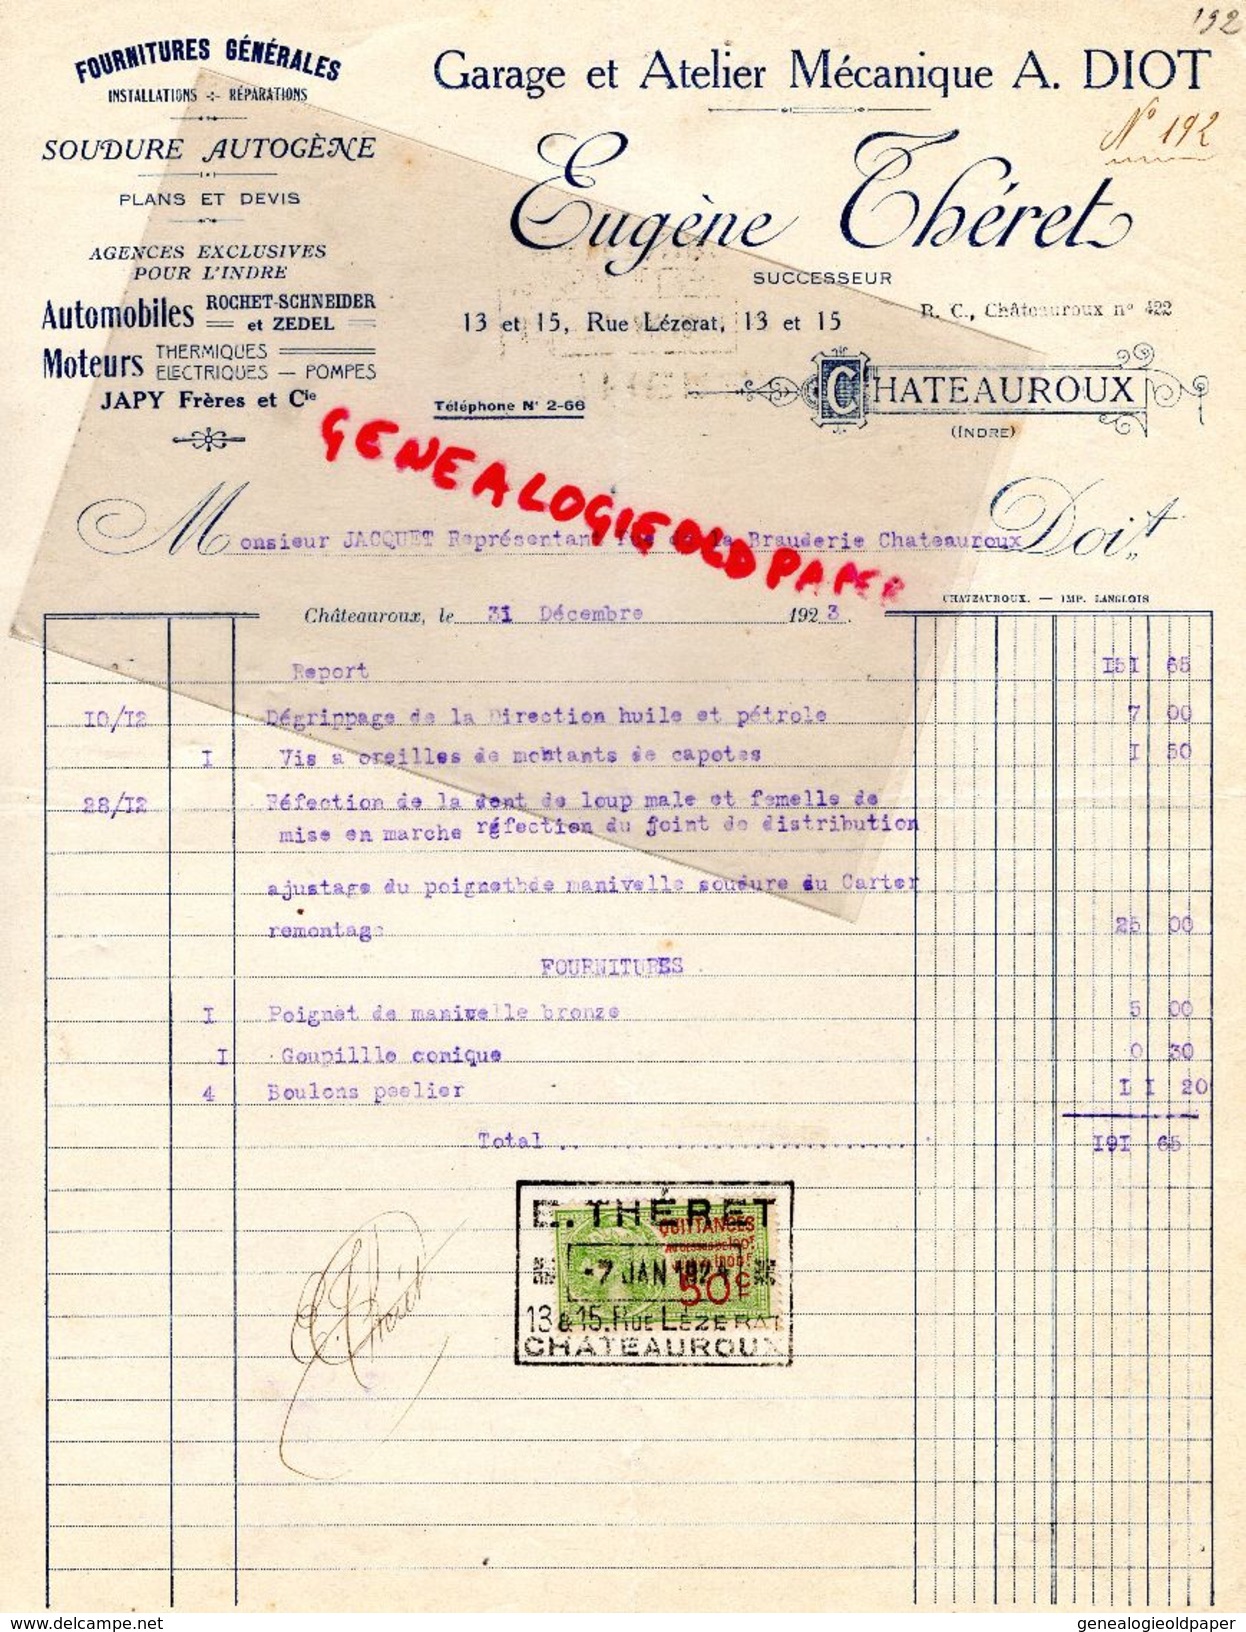 192
FOURNITURES GÉNÉRALES
INSTALLATIONS RÉPARATIONS
SOUDURE AUTOGÈNE
PLANS ET DEVIS
AGENCES EXCLUSIVES
POUR L'INDRE
Automobiles ROCHET-SCHNEIDER
et ZEDEL
Moteurs THERMIQUES
ELECTRIQUES — POMPES
JAPY Frères et Cie
Garage et Atelier Mécanique A. DIOT
N° 192
Eugène Théret
SUCCESSEUR
13 et 15, Rue Lézerat, 13 et 15
R. C., Châteauroux n° 422
Téléphone N° 2-66
CHATEAUROUX
(INDRE)
GENEALOGIEOLDPAPER
Monsieur JACQUET Représentant rue de la Brauderie Chateauroux Doit
CHATEAUROUX. — IMP. LANGLOIS
Châteauroux, le 31 Décembre 1923.
Report I5I 65
IO/I2 Dégrippage de la Direction huile et pétrole 7 00
I Vis a oreilles de montants de capotes I 50
28/I2 Réfection de la dent de loup male et femelle de
mise en marche réfection du joint de distribution
ajustage du poignet de manivelle soudure du Carter
remontage 25 00
FOURNITURES
I Poignet de manivelle bronze 5 00
I Goupillle conique 0 30
4 Boulons peelier I I 20
Total .. I9I 65
E. THÉRET
QUITTANCES
-7 JAN 1924
50c
13 & 15. RUE LÉZERAT
CHATEAUROUX
E. Théret
delcampe.net
genealogieoldpaper